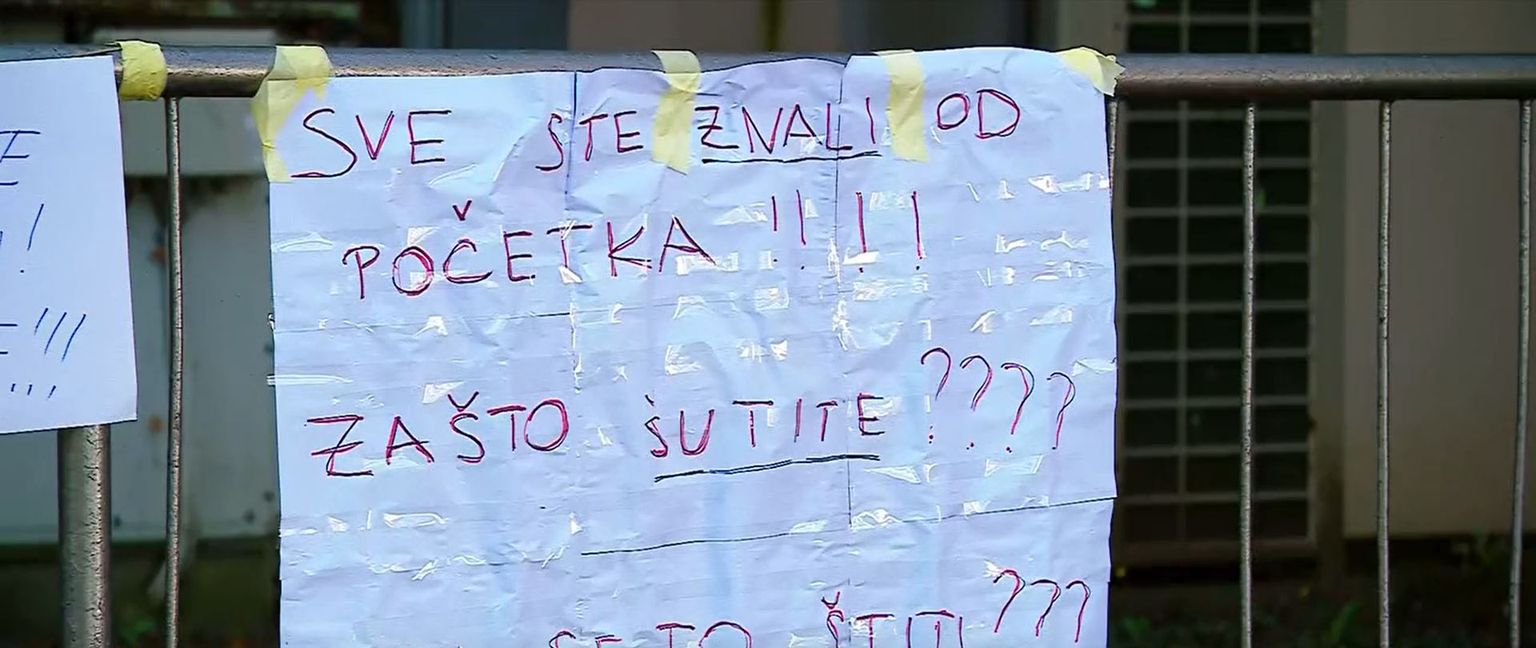 SVE STE ZNALI OD
POČETKA !!!!
ZAŠTO ŠUTITE????
SE TO ŠTITI???